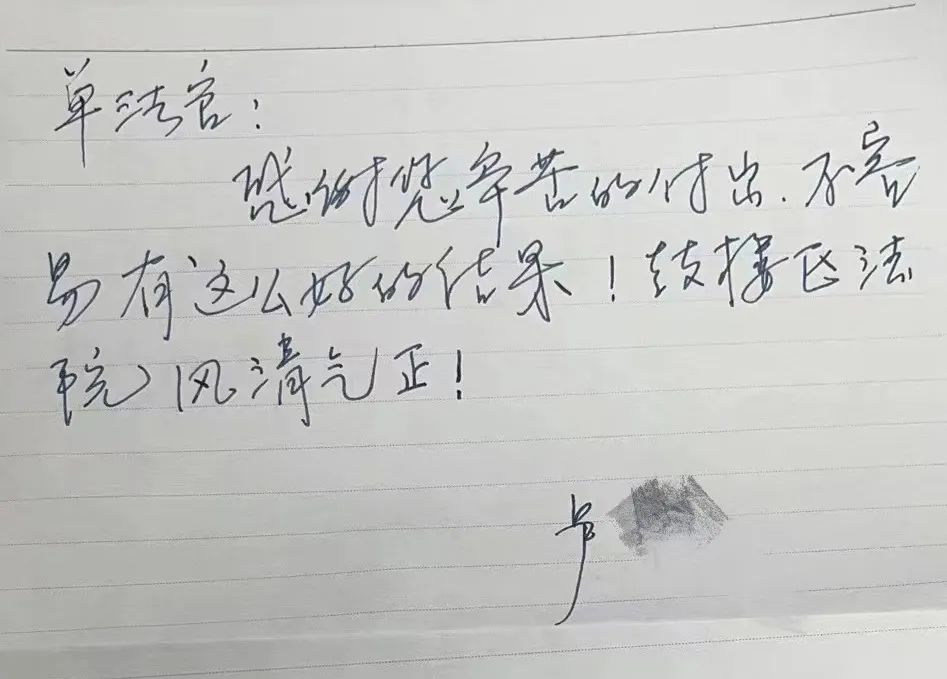 单法官:
感谢您辛苦的付出.不容
易有这么好的结果!鼓楼区法
院风清气正!
卢